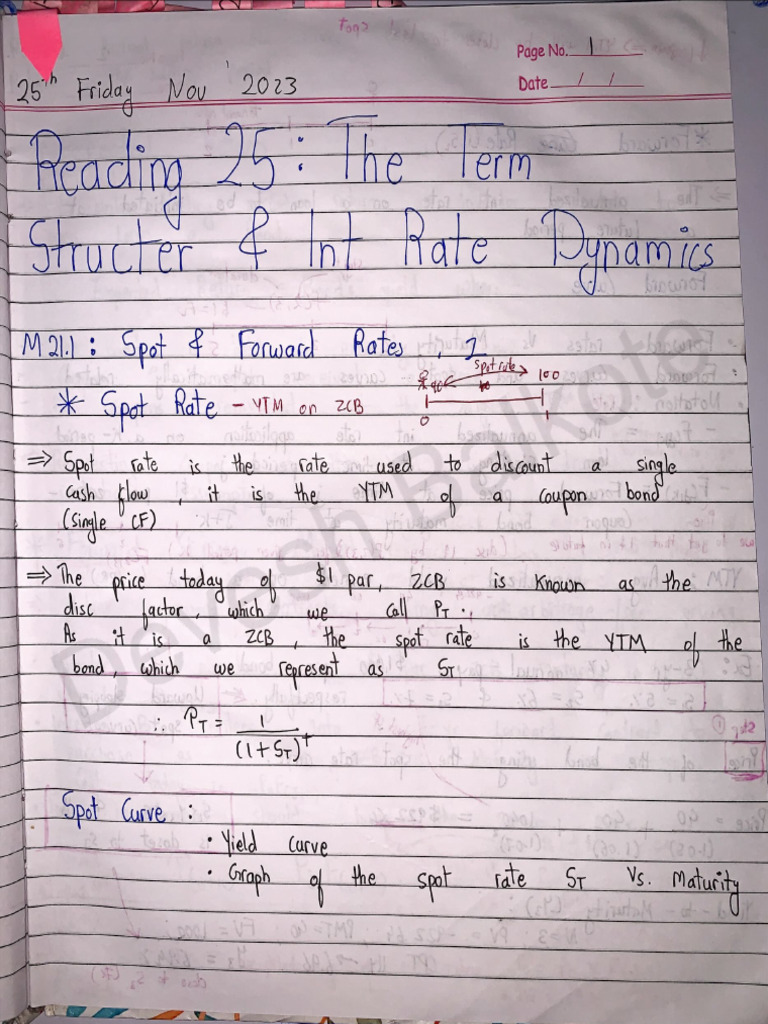 Page No. 1
25th Friday Nov ' 2023
Date / /
Reading 25: The Term
Structer & Int Rate Dynamics
M 21.1 : Spot & Forward Rates , I
Spot rate
90 100
* Spot Rate - YTM on ZCB
0 1
⇒ Spot rate is the rate used to discount a single
cash flow , it is the YTM of a coupon bond
(single CF)
⇒ The price today of $1 par, ZCB is known as the
disc factor, which we call PT .
As it is a ZCB , the spot rate is the YTM of the
bond, which we represent as ST
∴ PT = 1
(1 + ST)T
Spot Curve :
• Yield curve
• Graph of the spot rate ST Vs. Maturity
Devesh Balkote